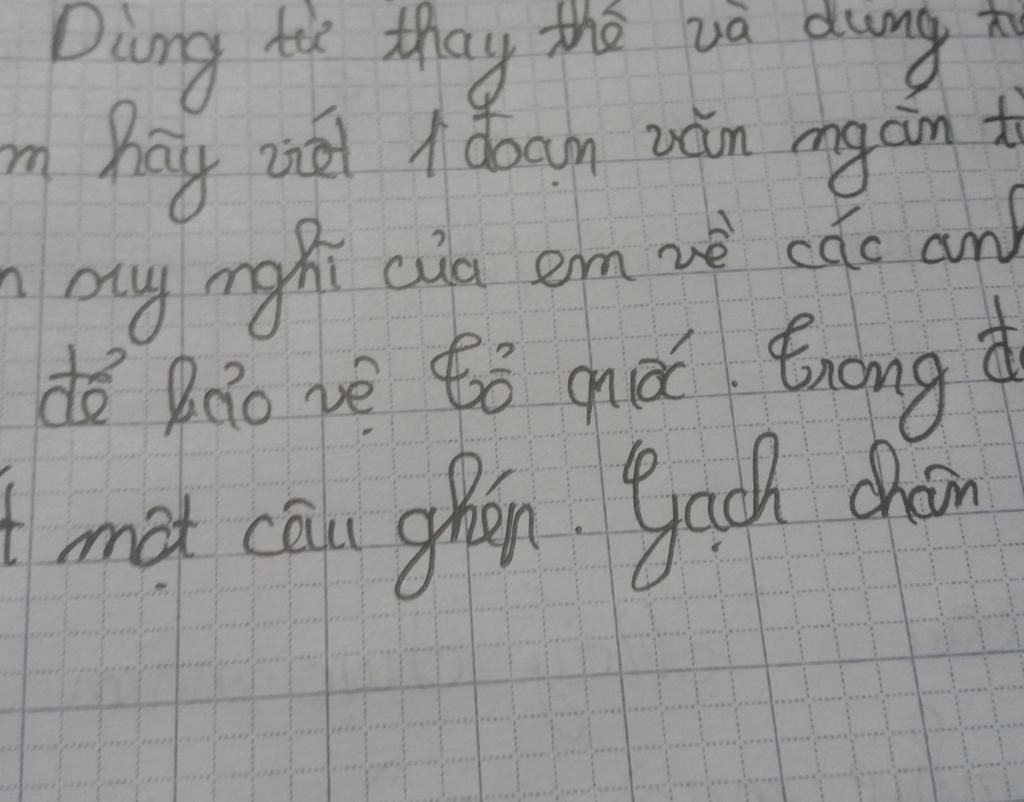 Dùng từ thay thế và dùng
hãy viết 1 đoạn văn ngắn
suy nghĩ của em về các anh
để bảo vệ tổ quốc. Trong
một câu ghép. Gạch chân